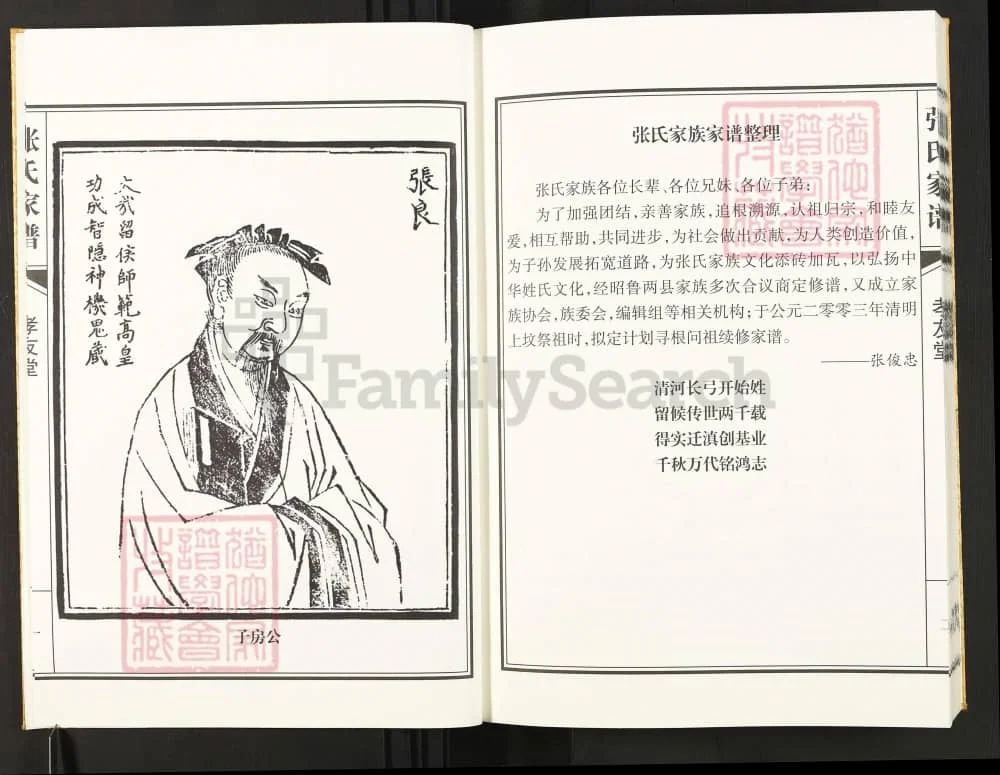 张氏家谱
孝友堂
張良
大哉留侯師範高皇
功成智隱神機鬼藏
子房公
张氏家族家谱整理
张氏家族各位长辈、各位兄妹、各位子弟：
为了加强团结，亲善家族，追根溯源，认祖归宗，和睦友
爱，相互帮助，共同进步，为社会做出贡献，为人类创造价值，
为子孙发展拓宽道路，为张氏家族文化添砖加瓦，以弘扬中
华姓氏文化，经昭鲁两县家族多次合议商定修谱，又成立家
族协会，族委会，编辑组等相关机构；于公元二零零三年清明
上坟祭祖时，拟定计划寻根问祖续修家谱。
——张俊忠
清河长弓开始姓
留候传世两千载
得实迁滇创基业
千秋万代铭鸿志
张氏家谱
孝友堂
FamilySearch